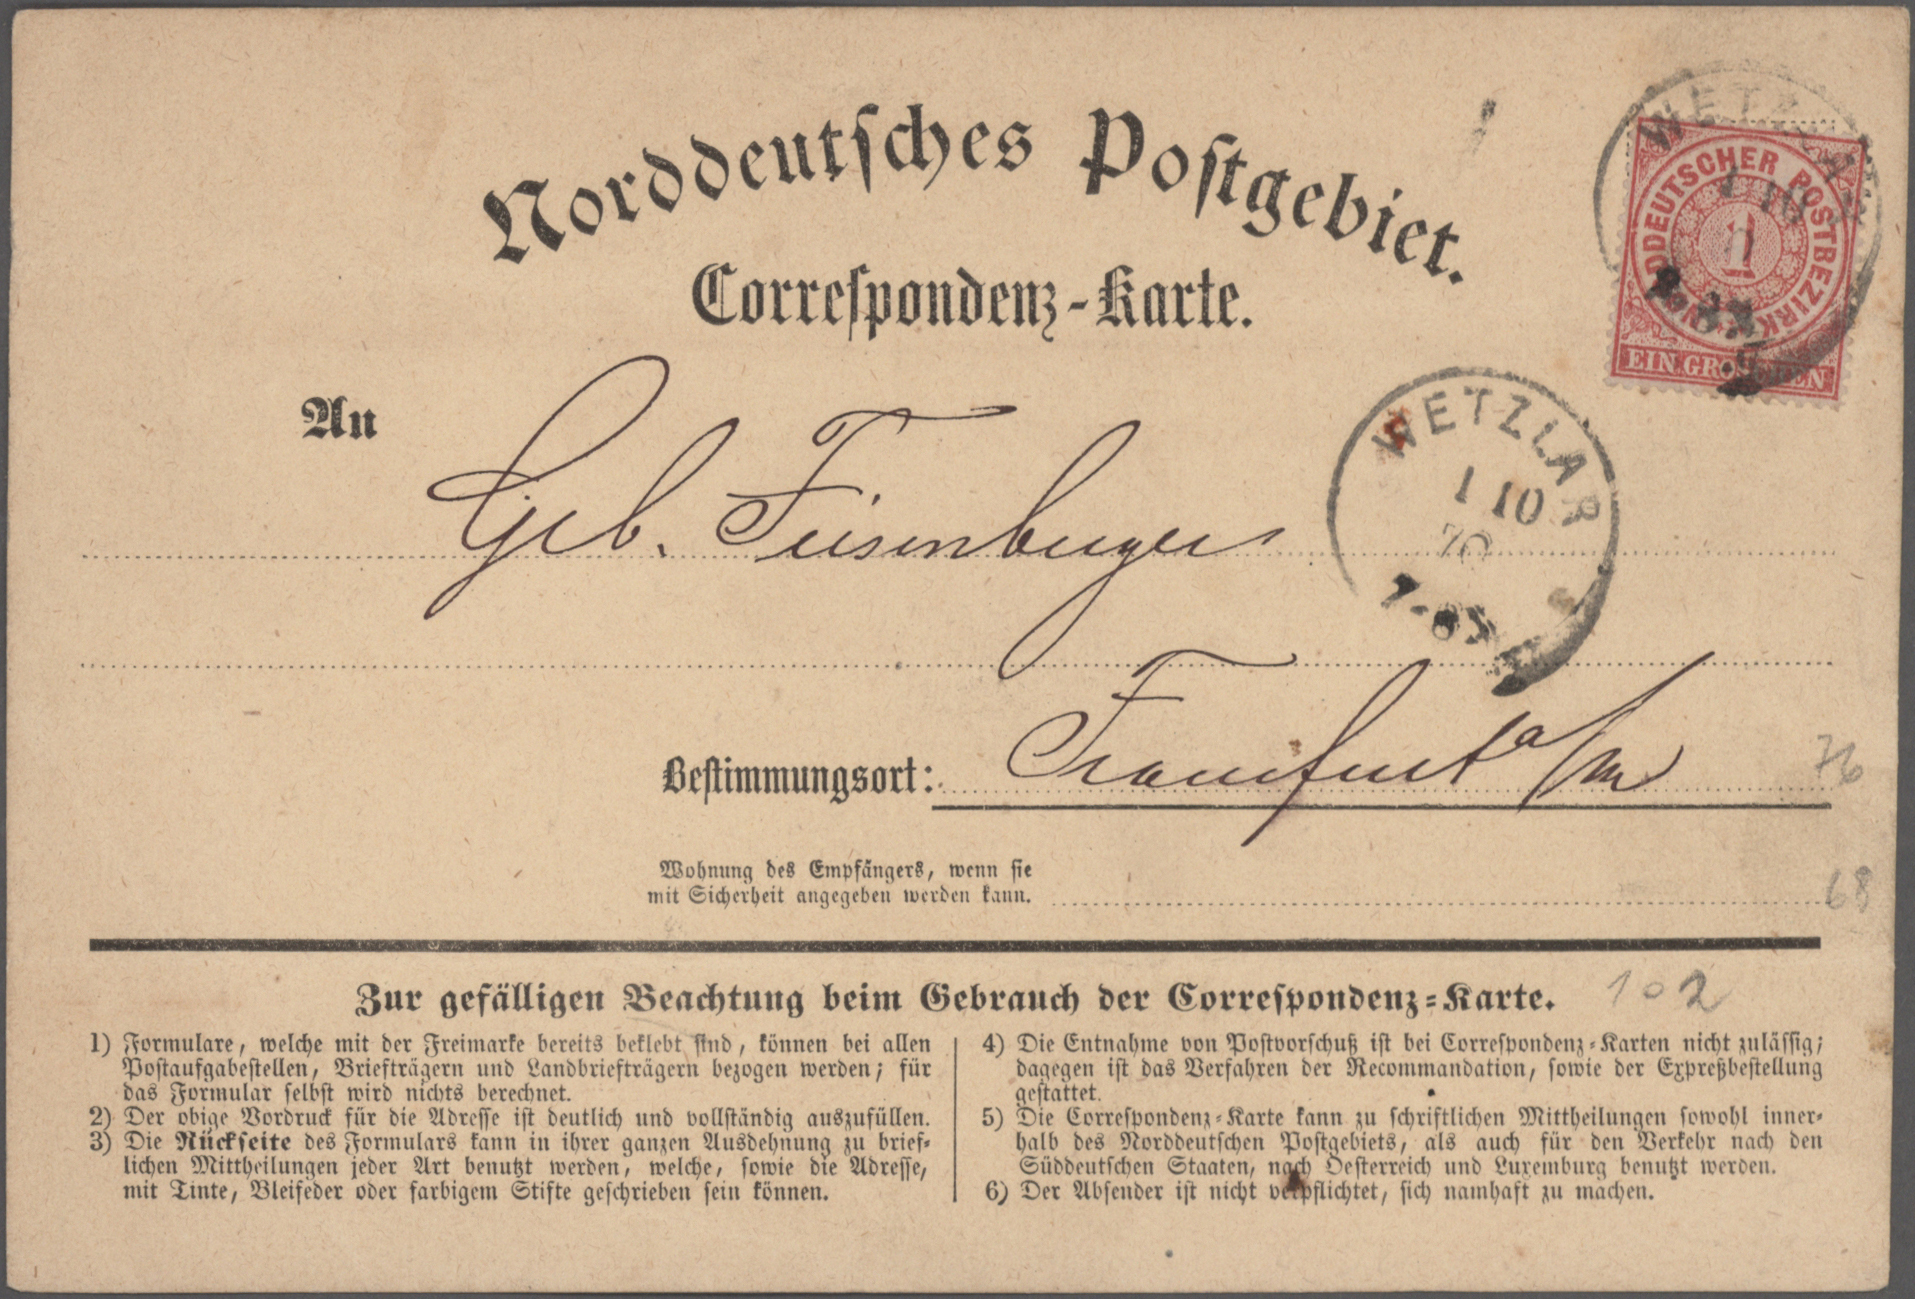 Norddeutsches Postgebiet.
Correspondenz-Karte.
NORDDEUTSCHER POSTBEZIRK
1
EIN GROSCHEN
WETZLAR
1 10
An
Geb. Feisenberger
WETZLAR
1 10
70
7-8
Bestimmungsort: Frankfurt a/m
76
Wohnung des Empfängers, wenn sie
mit Sicherheit angegeben werden kann.
68
Zur gefälligen Beachtung beim Gebrauch der Correspondenz-Karte. 102
1) Formulare, welche mit der Freimarke bereits beklebt sind, können bei allen
Postaufgabestellen, Briefträgern und Landbriefträgern bezogen werden; für
das Formular selbst wird nichts berechnet.
2) Der obige Vordruck für die Adresse ist deutlich und vollständig auszufüllen.
3) Die Rückseite des Formulars kann in ihrer ganzen Ausdehnung zu brief-
lichen Mittheilungen jeder Art benutzt werden, welche, sowie die Adresse,
mit Tinte, Bleifeder oder farbigem Stifte geschrieben sein können.
4) Die Entnahme von Postvorschuß ist bei Correspondenz-Karten nicht zulässig;
dagegen ist das Verfahren der Recommandation, sowie der Expreßbestellung
gestattet.
5) Die Correspondenz-Karte kann zu schriftlichen Mittheilungen sowohl inner-
halb des Norddeutschen Postgebiets, als auch für den Verkehr nach den
Süddeutschen Staaten, nach Oesterreich und Luxemburg benutzt werden.
6) Der Absender ist nicht verpflichtet, sich namhaft zu machen.